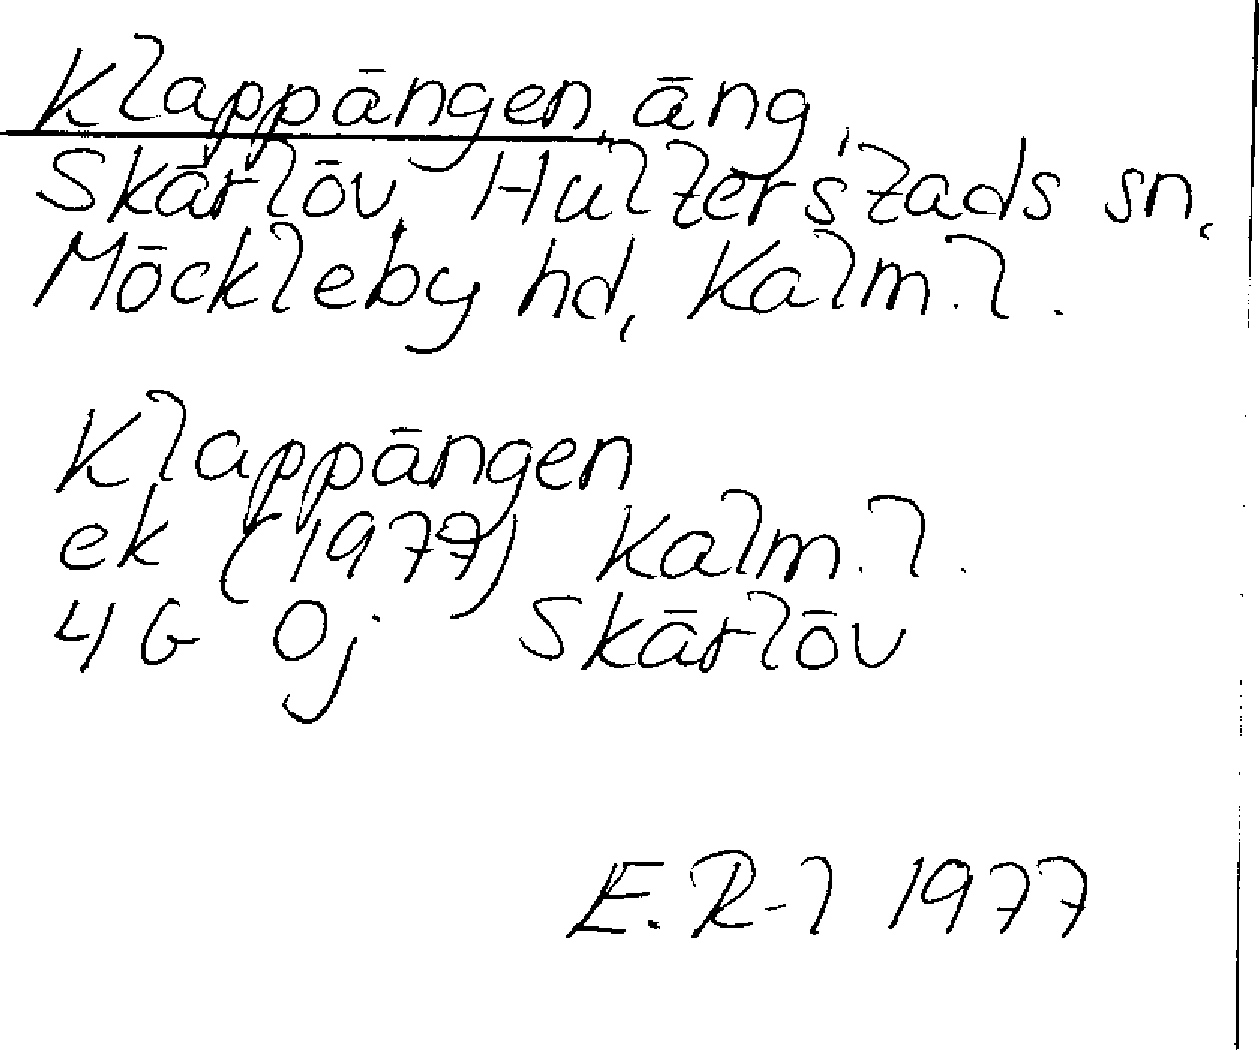 Klappängen, äng,
Skärlöv, Hulterstads sn,
Möckleby hd, Kalm. l.
Klappängen
ek (1977) Kalm. l.
4G 0j Skärlöv
E. R-l 1977